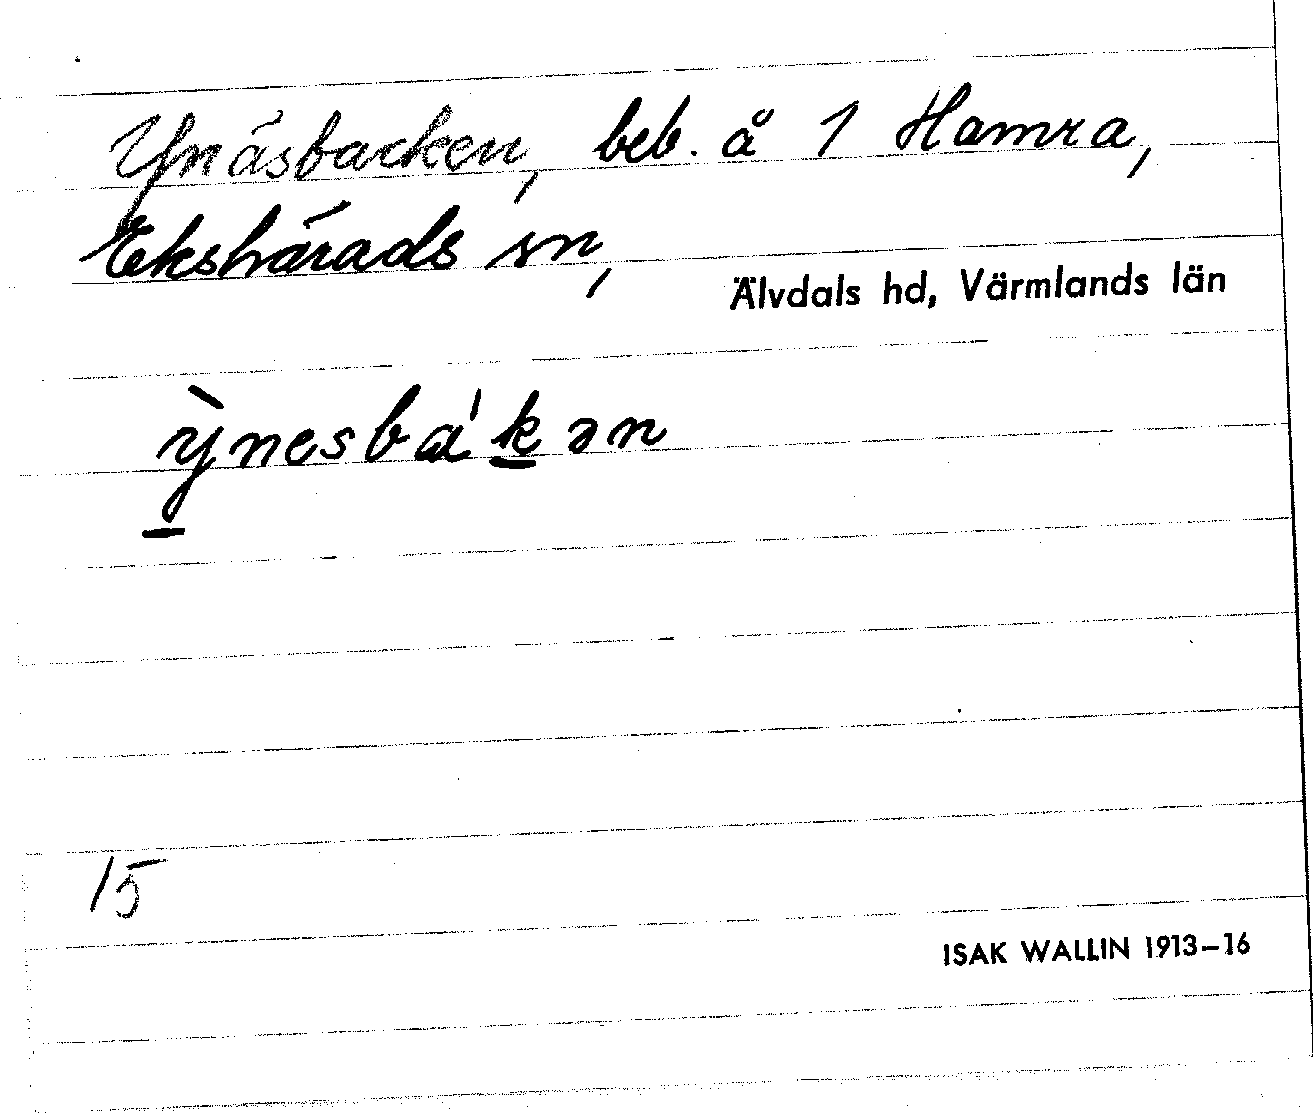 Ynäsbacken, beb. å 1 Hamra,
Ekshärads sn,
Älvdals hd, Värmlands län
ỳnesba'kən
15
ISAK WALLIN 1913–16